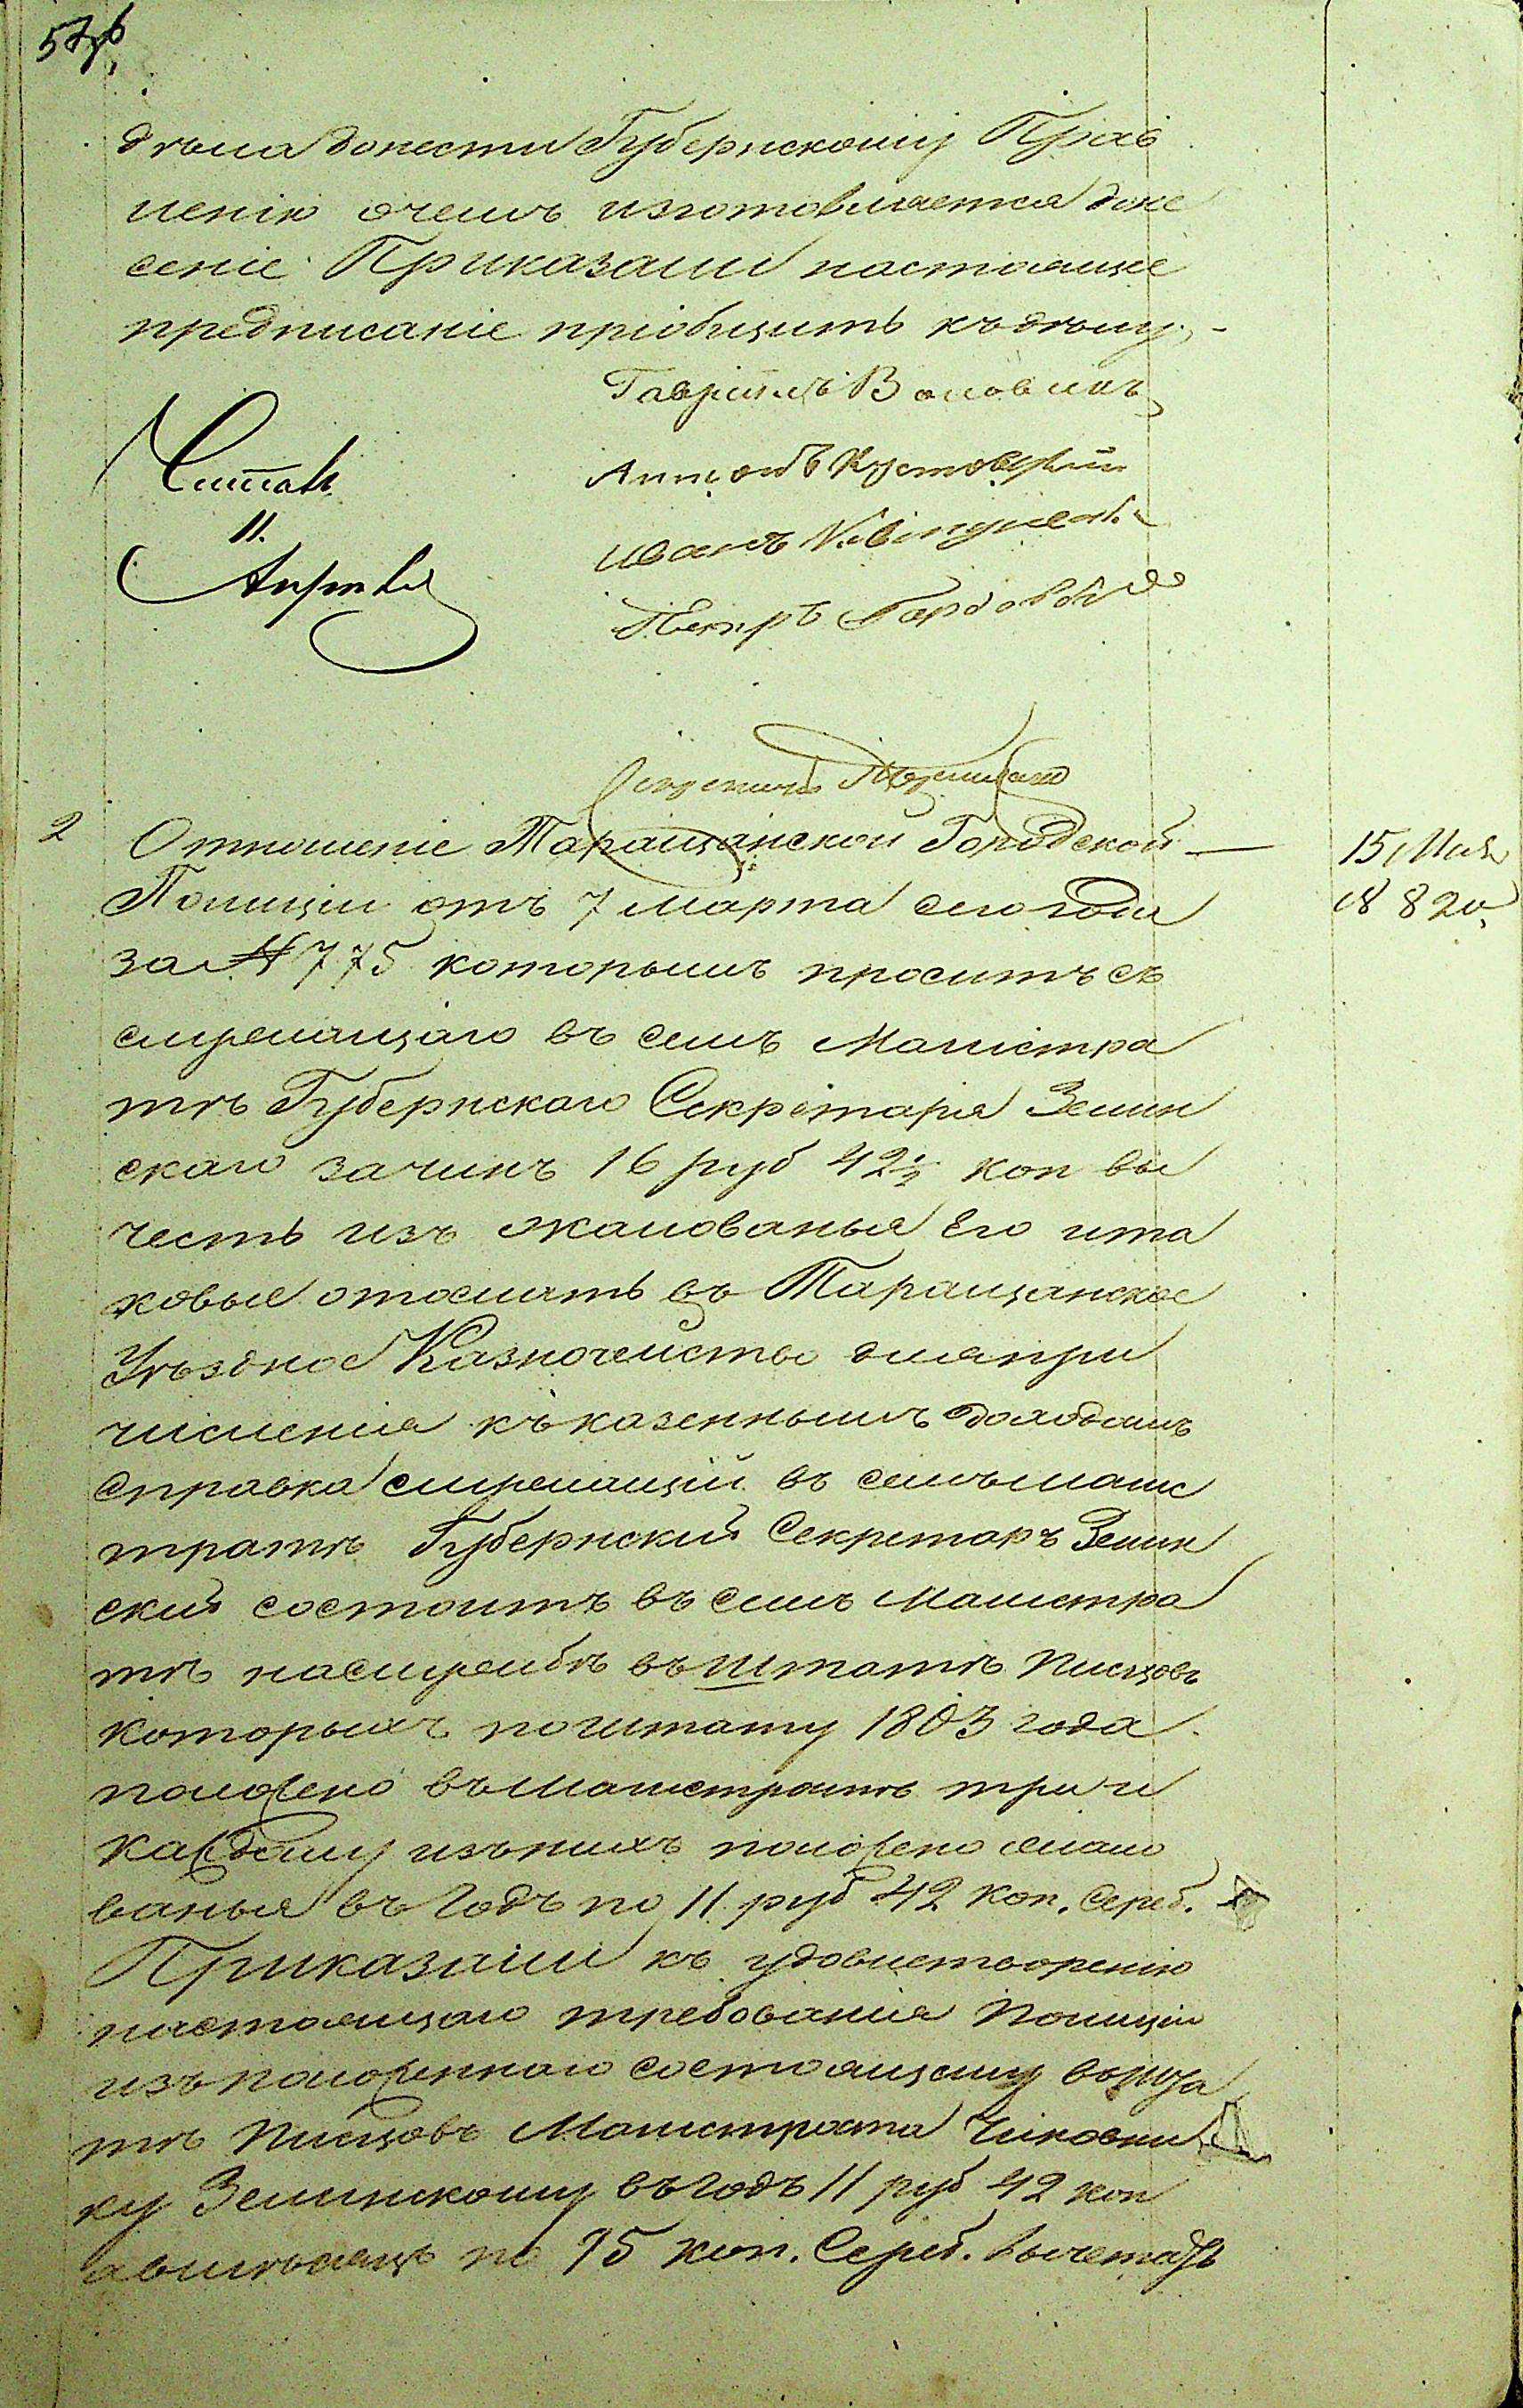 дѣла донести Губернскому Прав
ленію очемъ изготовляется доне
сеніе Приказали настоящее
предписаніе пріобщить къ дѣлу, -
Гавріилъ
Читалъ
Антонъ
11.
Иванъ
Петръ
2 Отношеніе Таращанской Городской —
15 Мая
Полиціи отъ 7 марта сего года
№ 820
за № 775 которымъ проситъ съ
служащаго въ семъ Магістра
тѣ Губернскаго Секрѣтаря Зелин
скаго за чинъ 16 руб 42½ коп вы
честь изъ жалованья Его и та
ковые отослать въ Таращанское
Уѣздное Казначейство для при
численія къ казеннымъ доходамъ
Справка служащій въ семъ магис
тратѣ Губернский Секретаръ Зелин
ский состоитъ въ семъ Магистра
тѣ на службѣ въ Штатѣ Писцовъ
которыхъ по штату 1803 года
положено въ Магистратѣ три и
каждому изъ нихъ положено жало
ванья въ Годъ по 11 руб 42 коп. Сереб.
Приказали къ удовлетворенію
настоящаго требованія Полиціи
изъ положеннаго состоящему въ шта
тѣ Писцовъ Магистрата Чиновни
ку Зелинскому въ Годъ 11 руб 42 коп
а въ мѣсяцъ по 95 коп. Сереб.